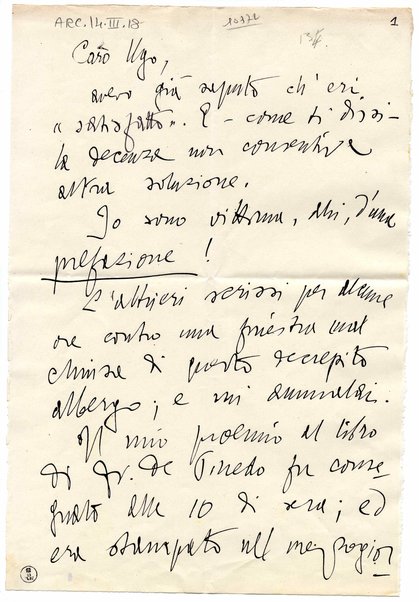 ARC.14.III.18
1
Caro Ugo,
avevo già saputo ch'eri
"satisfatto". E - come ti dissi -
la decenza non consentiva
altra soluzione.
Io sono vittima, ahi, d'una
prefazione!
L'altrieri scrissi per alcune
ore contro una finestra mal
chiusa di questo decrepito
albergo; e mi ammalai.
Il mio proemio al libro
di Fr. De Pinedo fu conse-
gnato alle 10 di sera; ed
era stampato nel meriggio